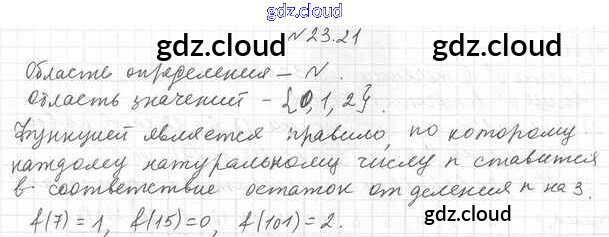 gdz.cloud
N 23.21
gdz.cloud gdz.cloud
Область определения – N.
Область значений – {0, 1, 2}.
Функцией является правило, по которому
каждому натуральному числу n ставится
в соответствие остаток от деления n на 3.
f(7) = 1, f(15) = 0, f(101) = 2.
gdz.cloud